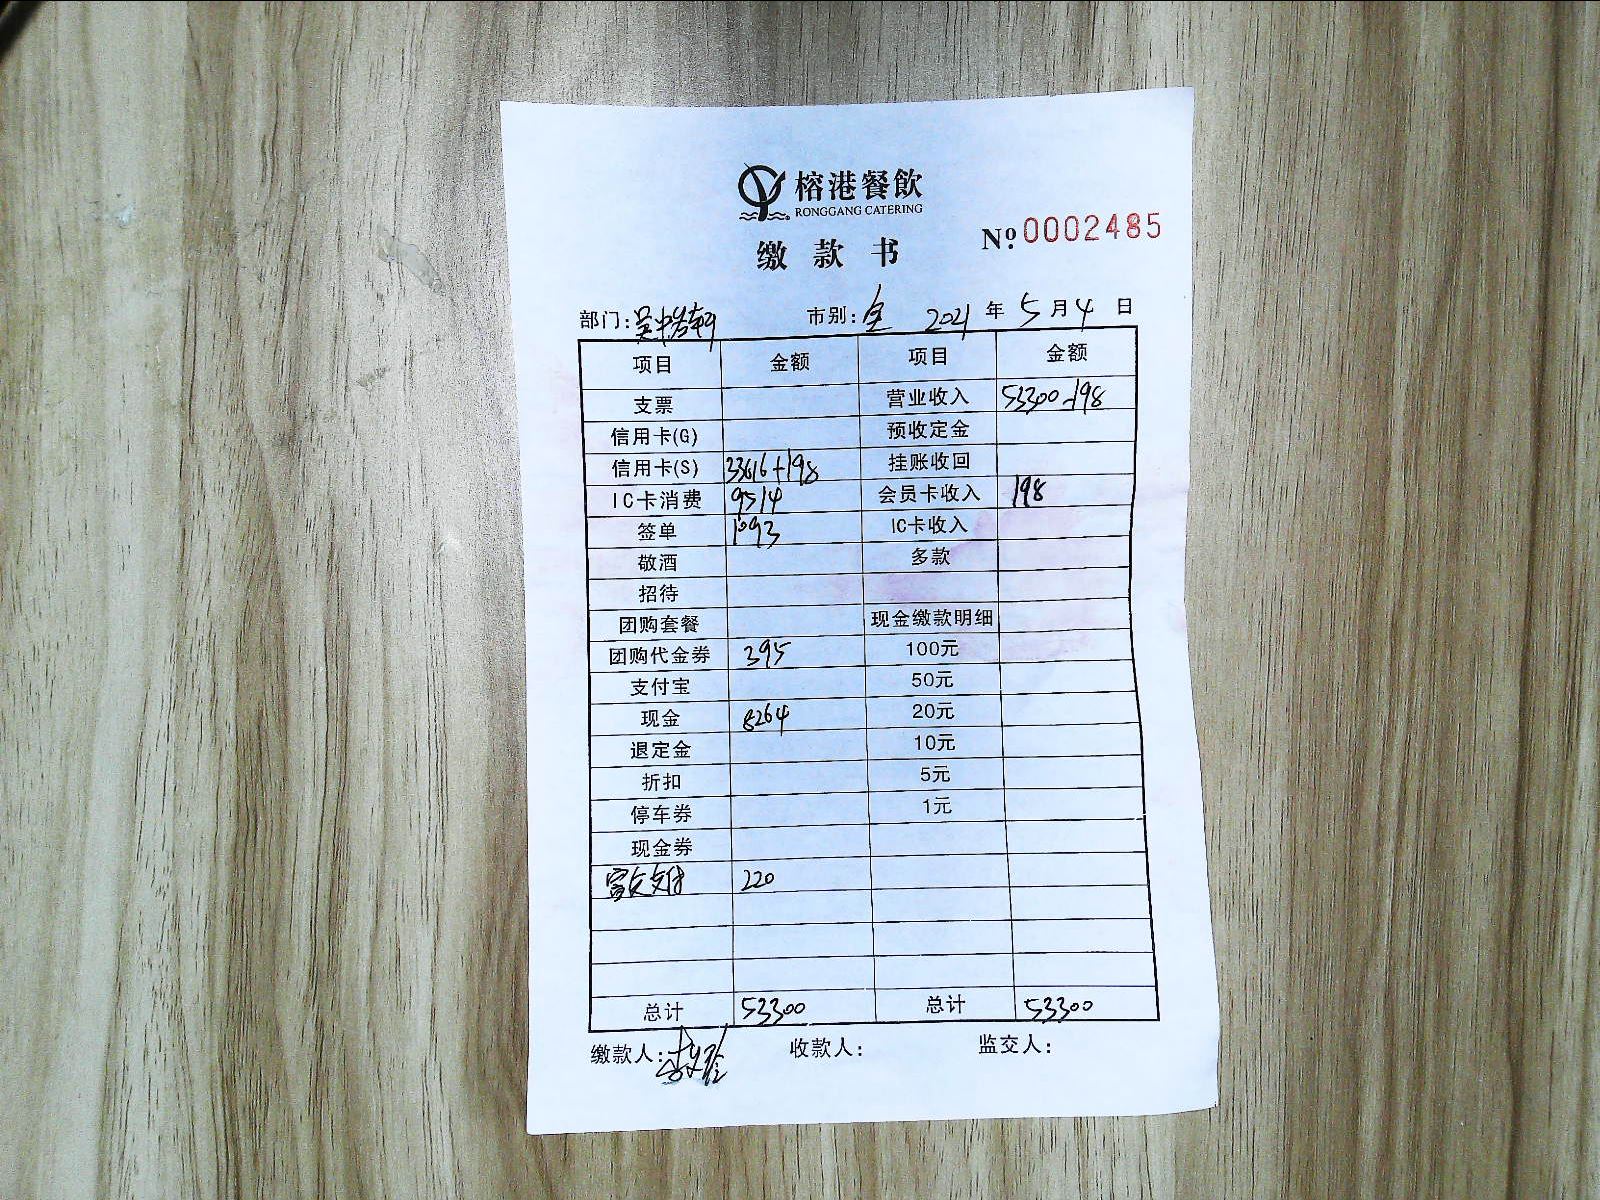 榕港餐飲
RONGGANG CATERING
缴款书
Nº 0002485
部门: 市别: 全 2021 年 5 月 4 日
项目 金额 项目 金额
支票 营业收入 53300-198
信用卡(G) 预收定金
信用卡(S) 33616+198 挂账收回
IC卡消费 9514 会员卡收入 198
签单 1093 IC卡收入
敬酒 多款
招待
团购套餐 现金缴款明细
团购代金券 395 100元
支付宝 50元
现金 8264 20元
退定金 10元
折扣 5元
停车券 1元
现金券
富友支付 220
总计 53300 总计 53300
缴款人: 收款人: 监交人: